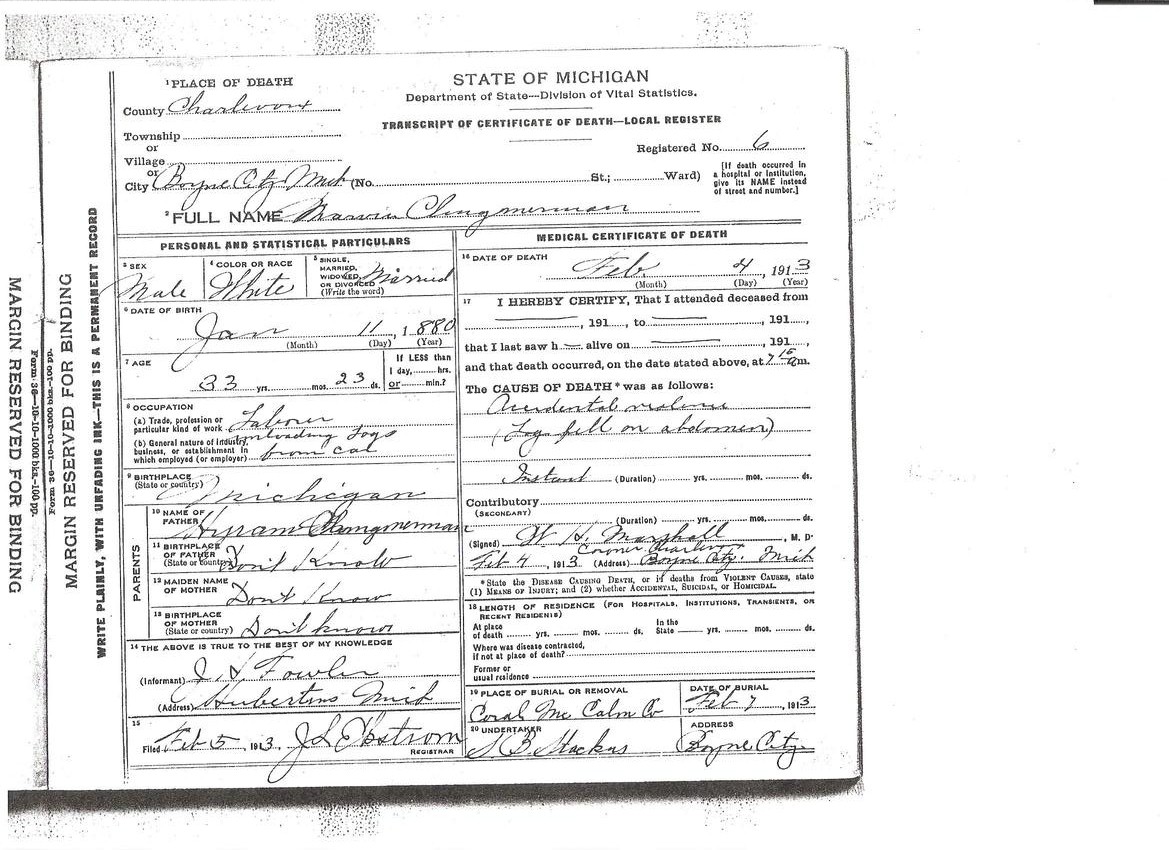 ¹PLACE OF DEATH
County Charlevoix
Township
or
Village
or
City Boyne City Mich (No. St.; Ward)
STATE OF MICHIGAN
Department of State—Division of Vital Statistics.
TRANSCRIPT OF CERTIFICATE OF DEATH—LOCAL REGISTER
Registered No. 6
[If death occurred in
a hospital or institution,
give its NAME instead
of street and number.]
²FULL NAME Marvin Clingmerman
PERSONAL AND STATISTICAL PARTICULARS
³ SEX
Male
⁴ COLOR OR RACE
White
⁵ SINGLE,
MARRIED,
WIDOWED,
OR DIVORCED
(Write the word)
Married
⁶ DATE OF BIRTH
Jan 11, 1880
(Month) (Day) (Year)
⁷ AGE
33 yrs. mos. 23 ds.
If LESS than
1 day, hrs.
or min.?
⁸ OCCUPATION
(a) Trade, profession or
particular kind of work Laborer
(b) General nature of industry,
business, or establishment in
which employed (or employer)
unloading logs
from car
⁹ BIRTHPLACE
(State or country)
Michigan
PARENTS
¹⁰ NAME OF
FATHER
Hyram Clingmerman
¹¹ BIRTHPLACE
OF FATHER
(State or country)
Don't Know
¹² MAIDEN NAME
OF MOTHER
Don't Know
¹³ BIRTHPLACE
OF MOTHER
(State or country)
Don't know
¹⁴ THE ABOVE IS TRUE TO THE BEST OF MY KNOWLEDGE
(Informant) Fowler
(Address) Mich
¹⁵
Filed Feb 5, 1913, Ekstrom
REGISTRAR
MEDICAL CERTIFICATE OF DEATH
¹⁶ DATE OF DEATH
Feb 4, 1913
(Month) (Day) (Year)
¹⁷ I HEREBY CERTIFY, That I attended deceased from
, 191 , to , 191 ,
that I last saw h alive on , 191 ,
and that death occurred, on the date stated above, at 7 15 am.
The CAUSE OF DEATH* was as follows:
Accidental violence
(Log fell on abdomen)
Instant (Duration) yrs. mos. ds.
Contributory
(SECONDARY)
(Duration) yrs. mos. ds.
(Signed) W H Marshall, M. D.
Coroner Charlevoix
Feb 4, 1913 (Address) Boyne City Mich
*State the DISEASE CAUSING DEATH, or if deaths from VIOLENT CAUSES, state
(1) MEANS OF INJURY; and (2) whether ACCIDENTAL, SUICIDAL, or HOMICIDAL.
¹⁸ LENGTH OF RESIDENCE (FOR HOSPITALS, INSTITUTIONS, TRANSIENTS, OR
RECENT RESIDENTS)
At place
of death yrs. mos. ds.
In the
State yrs. mos. ds.
Where was disease contracted,
if not at place of death?
Former or
usual residence
¹⁹ PLACE OF BURIAL OR REMOVAL
Coral Mc Calm Co
DATE OF BURIAL
Feb 7, 1913
²⁰ UNDERTAKER
S B Stackus
ADDRESS
Boyne City
WRITE PLAINLY, WITH UNFADING INK—THIS IS A PERMANENT RECORD
MARGIN RESERVED FOR BINDING
Form 36—10-10-1000 bks.-100 pp.
MARGIN RESERVED FOR BINDING
Form 36—10-10-1000 bks.-100 pp.